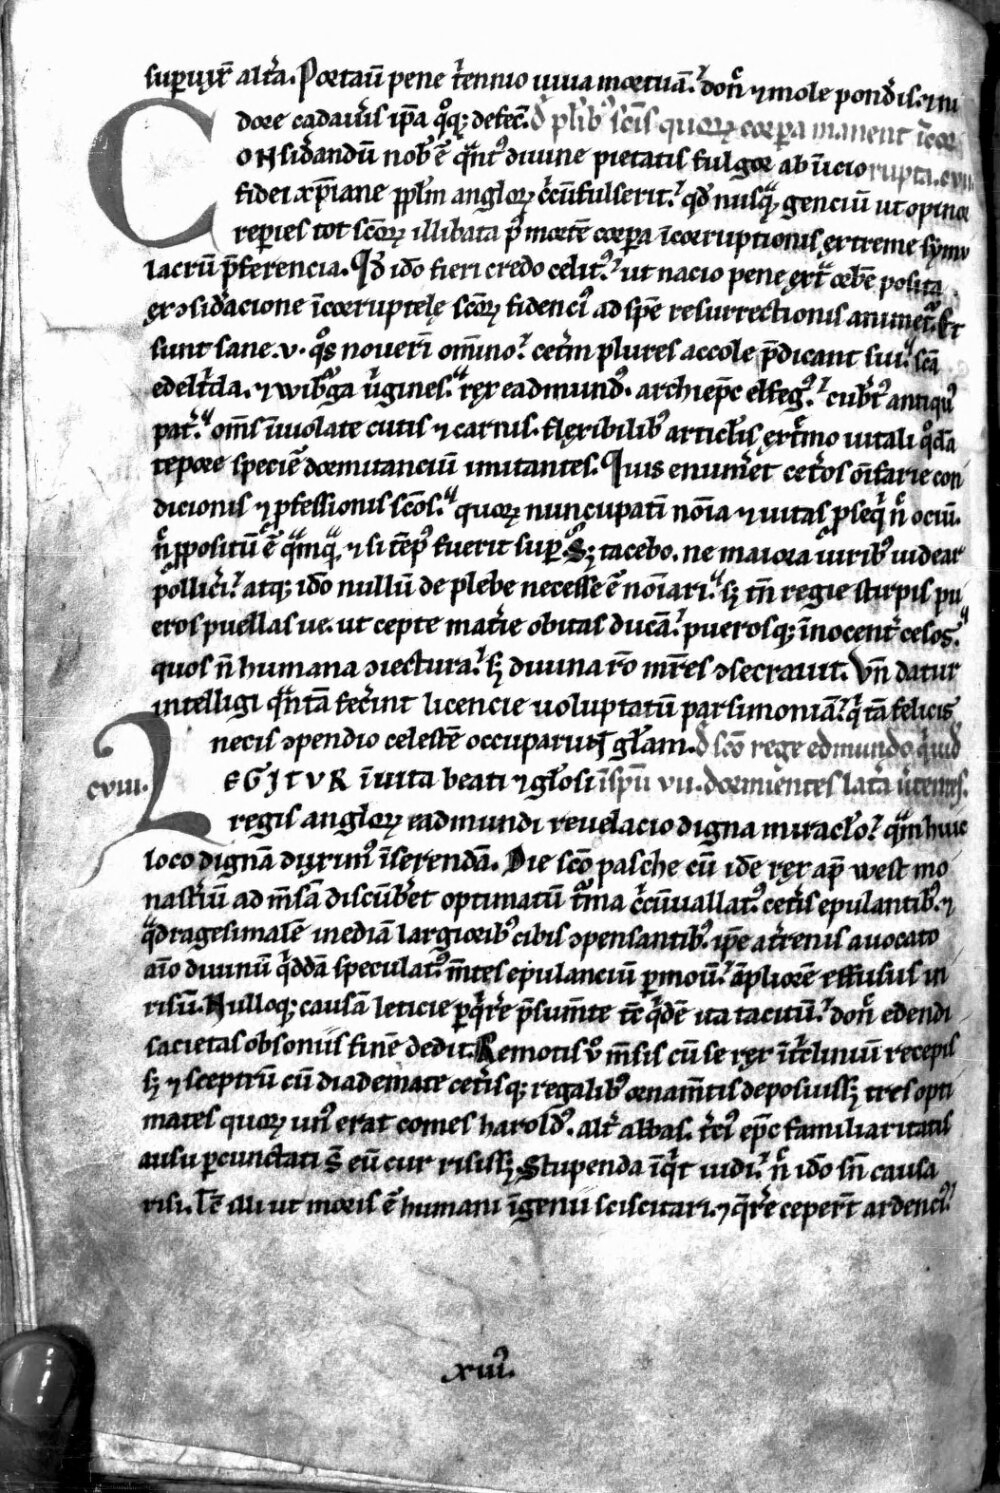 supuixit altͣa. Portaū pene t͛ennio uiua mortuā.ʾ don͛ ⁊ mole pond͛is. ⁊ ni
dore cadau͛is ip̄a qͦqꝫ defec̄. D̾ plib̾ sc̄is quoꝝ corpora manent īcor
ONsid͛andū nob̾ ē qͣnt̾ diuine pietatis fulgor ab īicio rupta. cvii.
fidei xp̄iane ppl̄m angloꝝ c͛cūfulserit.ʾ qd̾ nusqͣꝫ genciū ut opinor
rep͛ies tot sc̄oꝝ illibata p̾ mortē corpora īcorruptionis ext͛eme symu
lacrū p̄ferencia. Qd̾ id̾o fieri credo celit̾.ʾ ut nacio pene ext͛ͣ orbē posita
ex ɔsid͛acione īcorruptelę sc̄oꝝ fidenci̾ ad spē resurrectionis animet͛. Et
sunt sane .v. qͦs nouerī om̄ino.ʾ cet͛m plures accole p̄dicant sui.ʾ sc̄a
edelt͛da. ⁊ wib̾ga u͛gines. rex eadmund̾. archiep̄c elfeg̾.ʾ cub͛t̾ antiqu̾
pat͛.ʾ om̄s īuiolate cutis ⁊ carnis. flexibilib̾ articl̄is ext͛mo uitali qͦdā
tepore speciē dormitanciū imitantes. Quis enum͛et cet͛os om̄ifarie con
dicionis ⁊ p̄fessionis sc̄os.ʾ quoꝝ nuncupatī noīa ⁊ uitas p̄seq̇ n̄ ociū.
n̄ ppositū ē qͣmqͣꝫ ⁊ si tēp̾ fuerit sup̾. Sꝫ tacebo. ne maiora uirib̾ uidear
pollic͛i.ʾ atqꝫ id̾o nullū de plebe necesse ē noīari.ʾ sꝫ tn̄ regie stirpis pu
eros puellas ue. ut cepte mat͛ie obitas ducā.ʾ puerosqꝫ īnocent͛ cesos.ʾ
quos n̄ humana ɔiectura.ʾ sꝫ diuina rō mr̄es ɔsecrauit. Vn̄ datur
intelligi qͣntā fec͛int licencie uoluptatū parsimoniā.ʾ q̇ tā felicis
necis ɔpendio celestē occuparunt gl̄am. D̾ sc̄o rege edmundo quid
cviii. LEGITVR ī uita beati ⁊ gl̄osi īspū vii. dormientes lat͛a u͛tentes.
regis angloꝝ eadmundi reuelacio digna miracl̄o.ʾ qͣm huic
loco dignā duxim̾ īserendā. Die sc̄o pasche cū idē rex ap̄ west mo
nast͛iū ad m̄sā discūb͛et optimatū t͛ma c͛cūuallat̾. cet͛is epulantib̾. ⁊
qͣdragesimalē inediā largiorib̾ cibis ɔpensantib̾. ip̄e a t͛renis auocato
aīo diuinū q̇ddā speculat̾. m̄tes epulanciū p͛mouit.ʾ āpliorē effusus in
risū. Nulloqꝫ causā leticie p͛q̇re p̄sum̄te tē q̇dē ita tacitū.ʾ don͛ edendi
sacietas obsoniis finē dedit. Remotis u̾ m̄sis cū se rex īt͛cliniū recepis
sꝫ ⁊ sceptrū cū diademate cet͛isqꝫ regalib̾ ornam̄tis deposuissꝫ tres opti
mates quoꝝ un̾ erat comes harold̾. alt͛ abbas. t͛ci̾ ep̄c familiaritatis
ausu p͛cunctati s̄ eū cur risissꝫ. Stupenda īq̇t uidi.ʾ n̄ id̾o sn̄ causa
risi. Tē illi ut moris ē humani īgenii sciscitari. ⁊ q̄rere ceper̄t ardenci̾.ʾ
xiii.